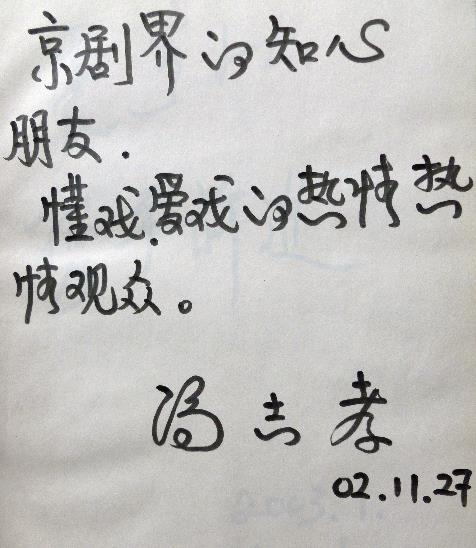 京剧界的知心
朋友.
懂戏,爱戏的热情热
情观众。
冯志孝
02.11.27